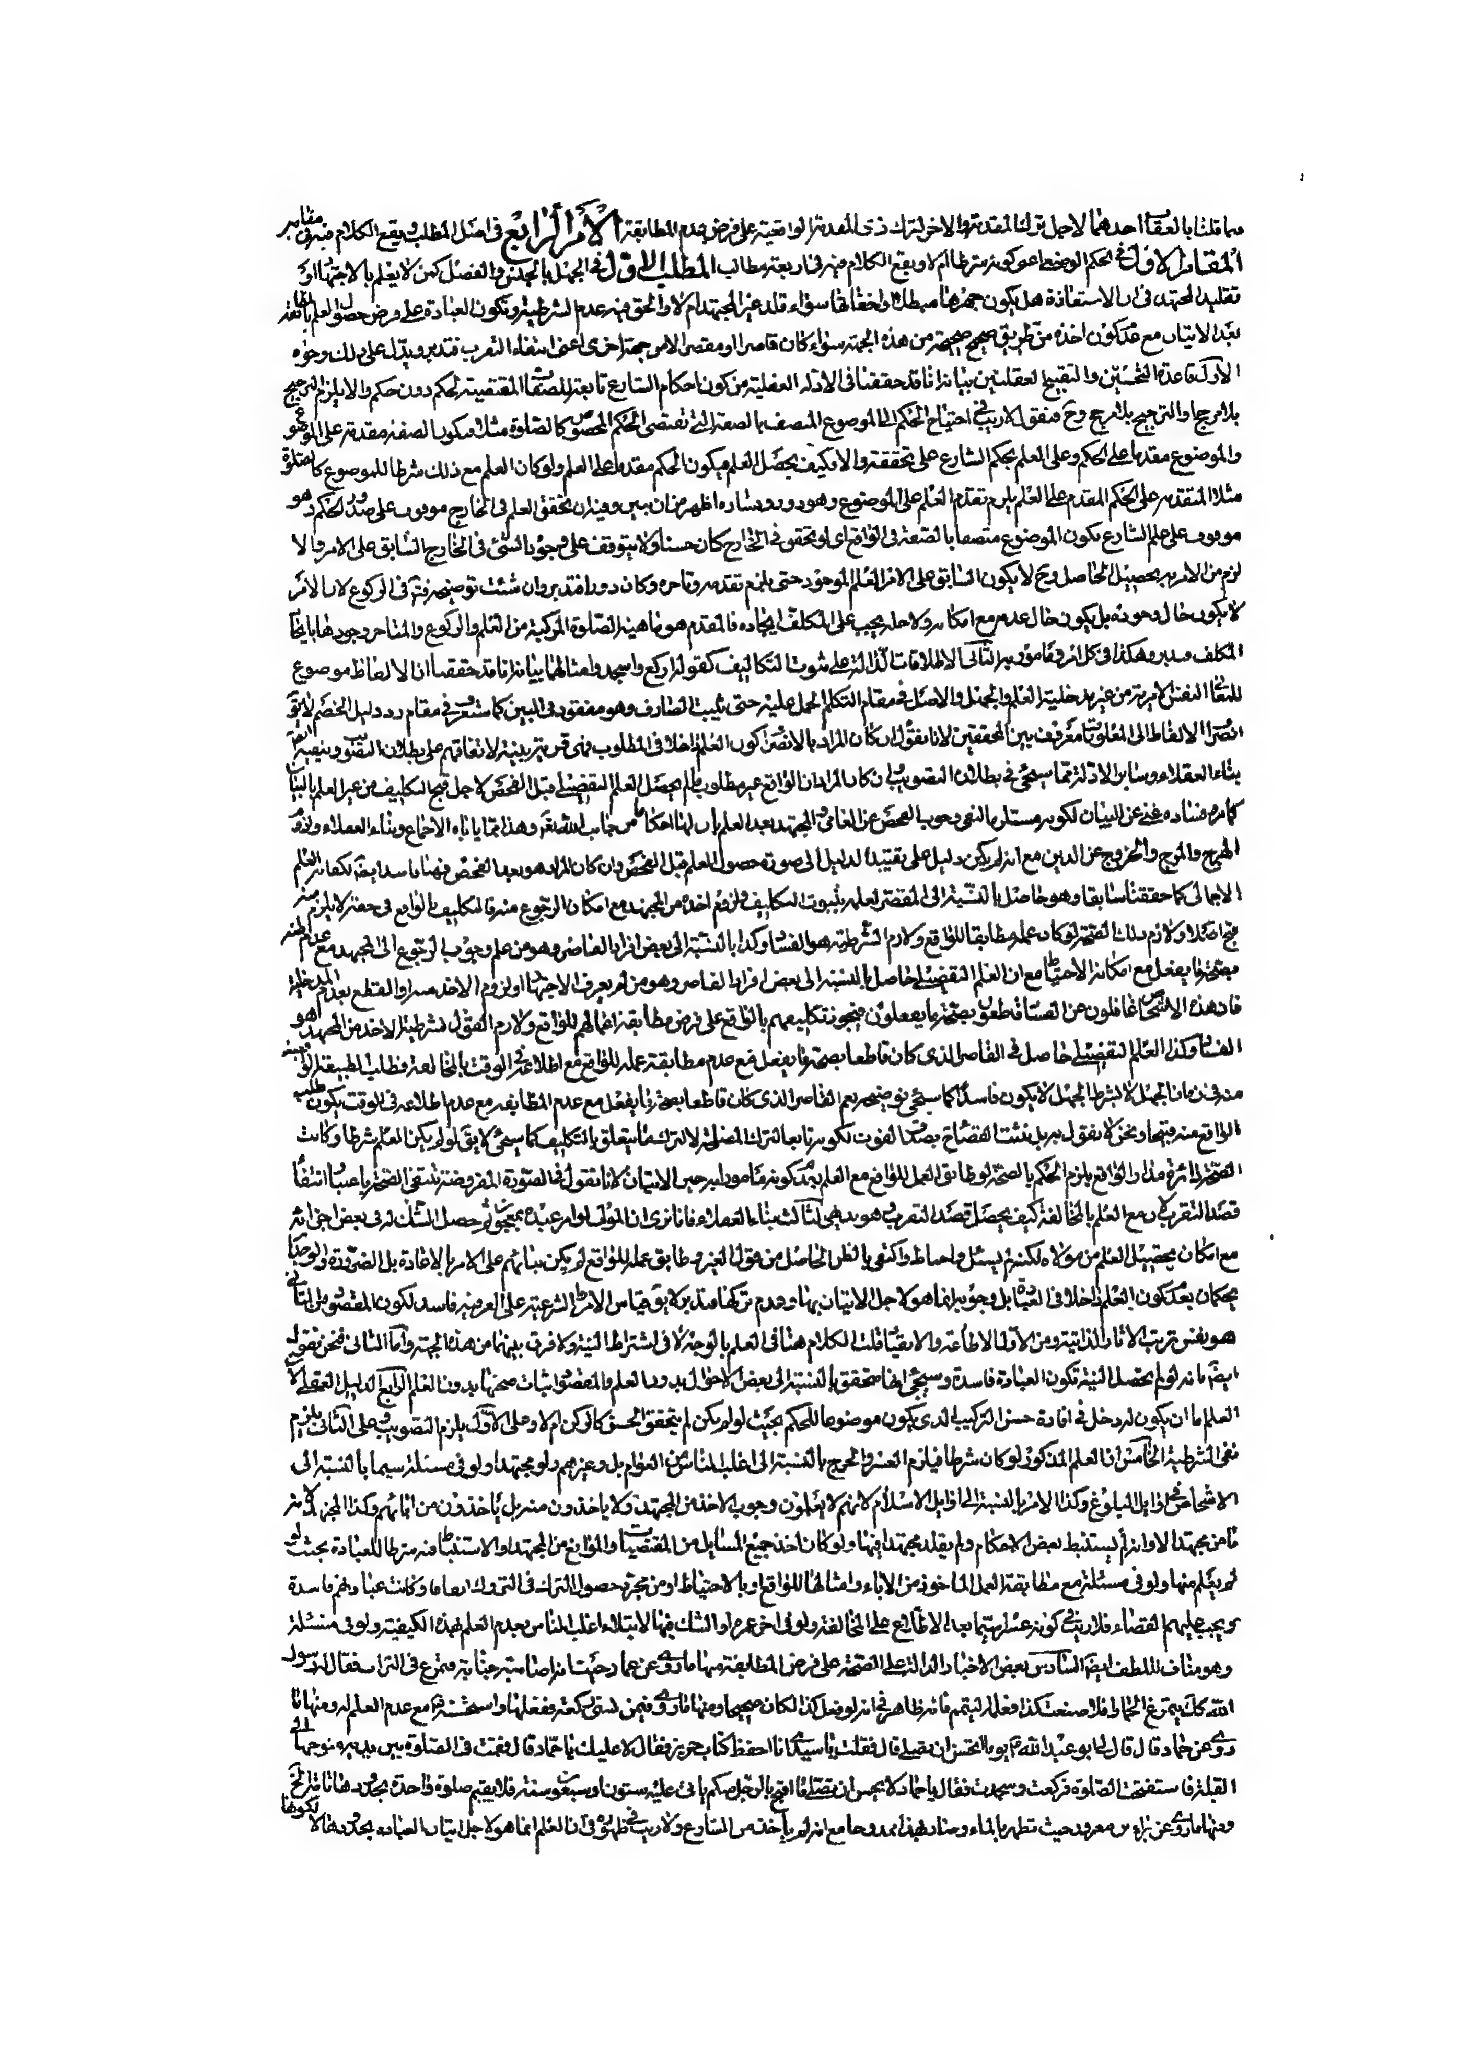 ما قلنا بالعقاب احدهما لاجل ترك المقدمة والاخر لترك ذى المقدمة الواقعية على فرض عدم المطابقة الامر الرابع فى اصل المطلب ويقع الكلام فيه فى مقامين
المقام الاول فى الحكم الوضعى اعنى كونه شرطا ام لا ويقع الكلام فيه فى اربعة مطالب المطلب الاول فى الجهل بالجنس والفصل كمن لا يعلم بالاجتهاد او
تقليد المجتهد فى ان الاستعاذة هل يكون جهرها مبطلا او اخفاتها سواء قلد غير المجتهد ام لا والحق فيه عدم الشرطية وتكون العبادة على فرض حصول العلم بالمطابقة
بعد الاتيان مع عدم كون اخذه من طريق صحيح صحيحة من هذه الجهة سواء كان قاصرا او مقصرا الا من جهة اخرى اعنى انتفاء التقرب فتدبر ويدل على ذلك وجوه
الاول قاعدة التحسين والتقبيح العقليين بيانه انا قد حققنا فى الادلة العقلية من كون احكام الشارع تابعة للصفات المقتضية لحكم دون حكم والا يلزم الترجيح
بلا مرجح او الترجيح بلا مرجح وح فنقول لا ريب فى احتياج الحكم الى الموضوع المتصف بالصفة التى تقتضى الحكم المخصوص كالصلوة مثلا فيكون الصفة مقدمة على الموضوع
والموضوع مقدما على الحكم وعلى العلم بحكم الشارع على تحققه والا فكيف يحصل العلم فيكون الحكم مقدما على العلم ولو كان العلم مع ذلك شرطا للموضوع كالصلوة
مثلا المتقدمة على الحكم المقدم على العلم يلزم تقدم العلم على الموضوع وهو دور وفساده اظهر من ان يبين وفيه ان تحقق العلم فى الخارج موقوف على صدور الحكم وهو
موقوف على علم الشارع بكون الموضوع متصفا بالصفة فى الواقع اى لو تحقق فى الخارج كان حسنا ولا يتوقف على وجود الشئ فى الخارج السابق على الامر والا
لزم من الامر به تحصيل الحاصل وح لا يكون السابق على الامر العلم الموجود حتى يلزم تقدمه وتاخره وكان دورا فتدبر وان شئت توضيحه فى الركوع لان الامر
لا يكون حال وجوده بل يكون حال عدمه مع امكانه ولاجله يجب على المكلف ايجاده فالمقدم هو ماهية الصلوة المركبة من العلم والركوع والمتاخر وجودها بايجاد
المكلف فتدبر وهكذا فى كل امر ومامور به الثانى الاطلاقات الدالة على ثبوت التكاليف كقوله اركع واسجد وامثالهما بيانه انا قد حققنا ان الالفاظ موضوع
للمعانى النفس الامرية من غير مدخلية العلم والجهل والاصل فى مقام التكلم الحمل عليه حتى يثبت الصارف وهو مفقود فى البين كما ستعرف فى مقام رد دليل الخصم لا يقال
انصراف الالفاظ الى المعلومات معروف بين المحققين لانا نقول ان كان المراد بالانصراف كون العلم داخلا فى المطلوب فهى قرينة لاتفاقهم على بطلان التصويب
بناء العقلاء وسائر الادلة مما سيجئ فى بطلان التصويب وان كان المراد ان الواقع غير مطلوب ما لم يحصل العلم التفصيلى قبل الفحص لاجل قبح التكليف من غير العلم بالبيان
كما مر ففساده غنى عن البيان لكونه مستلزما لنفى وجوب الفحص عن العامى والمجتهد بعد العلم بان لها احكاما من جناب الله تعالى وهذا مما ياباه الاجماع وبناء العقلاء ولزوم
الهرج والمرج والخروج عن الدين مع انه لم يكن دليل على تقييد الدليل الى صورة حصول العلم قبل الفحص وان كان المراد هو بعد الفحص فهذا فاسد ايضا لكفاية العلم
الاجمالى كما حققنا سابقا وهو حاصل بالنسبة الى المقصر لعلمه بثبوت التكاليف ولزوم اخذه من المجتهد مع امكان الرجوع منه فالتكليف بالواقع فى حقه لا يلزم منه
قبح اصلا ولازم ذلك الصحة لو كان عمله مطابقا للواقع ولازم الشرطية هو الفساد وكذا بالنسبة الى بعض افراد القاصر وهو من علم وجوب الرجوع الى المجتهد مع عدم علمه
بصحة ما يفعل مع امكانه الاحتياط مع ان العلم التفصيلى حاصل بالنسبة الى بعض افراد القاصر وهو من لم يعرف الاجتهاد او لزوم الاخذ منه او القطع بعدم المدخلية
فان هذه الاشخاص غافلون عن الفساد قاطعون بصحة ما يفعلون فيجوز تكليفهم بالواقع على فرض مطابقة اعمالهم للواقع ولازم القول بشرطية الاخذ من المجتهد هو
الفساد وكذا العلم التفصيلى حاصل فى القاصر الذى كان قاطعا بصحة ما يفعل فمع عدم مطابقة عمله للواقع مع اطلاعه فى الوقت بالمخالفة فطلب الطبيعة الواقعية
منه فى زمان الجهل لا بشرط الجهل لا يكون فاسدا كما سيجئ توضيحه نعم القاصر الذى كان قاطعا بصحة ما يفعل مع عدم المطابقة مع عدم اطلاعه فى الوقت يكون طلب
الواقع منه قبيحا ونحن لا نقول به بل يثبت القضاء بصدق الفوت لكونه تابعا لترك المصلحة لا لترك ما يتعلق به التكليف كما سيجئ لا يق لو لم يكن العلم شرطا وكانت
الصحة دائرة مدار الواقع يلزم الحكم بالصحة لو طابق العمل للواقع مع العلم بعدم كونه مامورا به حين الاتيان لانا نقول فى الصورة المفروضة ننفى الصحة باعتبار انتفاء
قصد التقرب لان مع العلم بالمخالفة كيف يحصل قصد التقرب وهو بديهى الثالث بناء العقلاء فانا نرى ان المولى لو امر عبده بمعجون ثم حصل الشك له فى بعض اجزائه
مع امكان تحصيل العلم من مولاه لكنه لم يسئل ولم احتاط واكتفى بالظن الحاصل من قول الغير وطابق عمله للواقع لم يكن بنائهم على الامر بالاعادة بل الضرورة والوجدان
يحكمان بعدم كون العلم داخلا فى العبادة بل وجوبه انما هو لاجل الاتيان بها وعدم تركها فتدبر لا يق قياس الاوامر الشرعية على العرفية فاسد لكون المقصود من الثانى
هو نفس ترتب الاثار الذاتية ومن الاولى الاطاعة والانقياد قلت الكلام هنا فى العلم بالوجه لا فى اشتراط النية ولا فرق بينهما من هذه الجهة واما الثانى فنحن نقول
ايضا بانه لو لم يحصل النية تكون العبادة فاسدة وسيجئ انها متحقق بالنسبة الى بعض الاحوال بدون العلم والمقصود اثبات صحتها بدون العلم الرابع الدليل العقلى لان
العلم اما ان يكون له دخل فى افادة حسن التركيب الذى يكون موضوعا للحكم بحيث لو لم يكن لم يتحقق الحسن كالركن ام لا وعلى الاول يلزم التصويب وعلى الثانى يلزم
نفى الشرطية الخامس ان العلم المذكور لو كان شرطا فيلزم العسر والحرج بالنسبة الى اغلب الناس من العوام بل وغيرهم ولو مجتهدا ولو فى مسئلة سيما بالنسبة الى
الاشخاص فى اوايل البلوغ وكذا الامر بالنسبة الى اوايل الاسلام لانهم لا يعلمون وجوب الاخذ من المجتهد ولا ياخذون منه بل ياخذون من ابائهم وكذا المجتهد لانه
ما من مجتهد الا وانه لم يستنبط بعض الاحكام ولم يقلد مجتهدا فيها ولو كان اخذ جميع المسايل من المقتضيات والموانع من المجتهد او الاستنباط منه شرطا للعبادة بحيث لو
لم يعلم منها ولو فى مسئلة مع مطابقة العمل الماخوذ من الاباء وامثالها للواقع او بالاحتياط او من مجرد حصول الترك فى التروك ايضا وكانت عبادتهم فاسدة
ويجب عليهم القضاء فلا ريب فى كونه عسرا سيما بعد الاطلاع على المخالفة ولو فى اخر عمره او الشك فيها لابتلاء اغلب الناس بعدم العلم بهذه الكيفية ولو فى مسئلة
وهو مناف للطف ايضا السادس بعض الاخبار الدالة على الصحة على فرض المطابقة منها ما روى عن عمار حيث انه اصابته جنابة فتمرغ فى التراب فقال له رسول
الله كذلك يتمرغ الحمار افلا صنعت كذا فعلمه التيمم فانه ظاهر فى انه لو فعل كذا لكان صحيحا ومنها ما روى فيمن نسى ركعة ففعلها واستحسنه مع عدم العلم له ومنها ما
روى عن حماد قال قال لى ابو عبد الله ع يوما اتحسن ان تصلى قال فقلت يا سيدى انا احفظ كتاب حريز فقال لا عليك يا حماد قال فقمت فى الصلوة بين يديه متوجها الى
القبلة فاستفتحت الصلوة فركعت وسجدت فقال يا حماد لا تحسن ان تصلى ما اقبح بالرجل منكم ياتى عليه ستون او سبعون سنة فلا يقيم صلوة واحدة بحدودها تامة الخ
ومنها ما روى عن براء بن معرور حيث تطهر بالماء وصار بهذا ممدوحا مع انه لم ياخذ من الشارع ولا ريب فى ظهوره فى ان العلم انما هو لاجل اتيان العبادة بحدودها لا لكونها